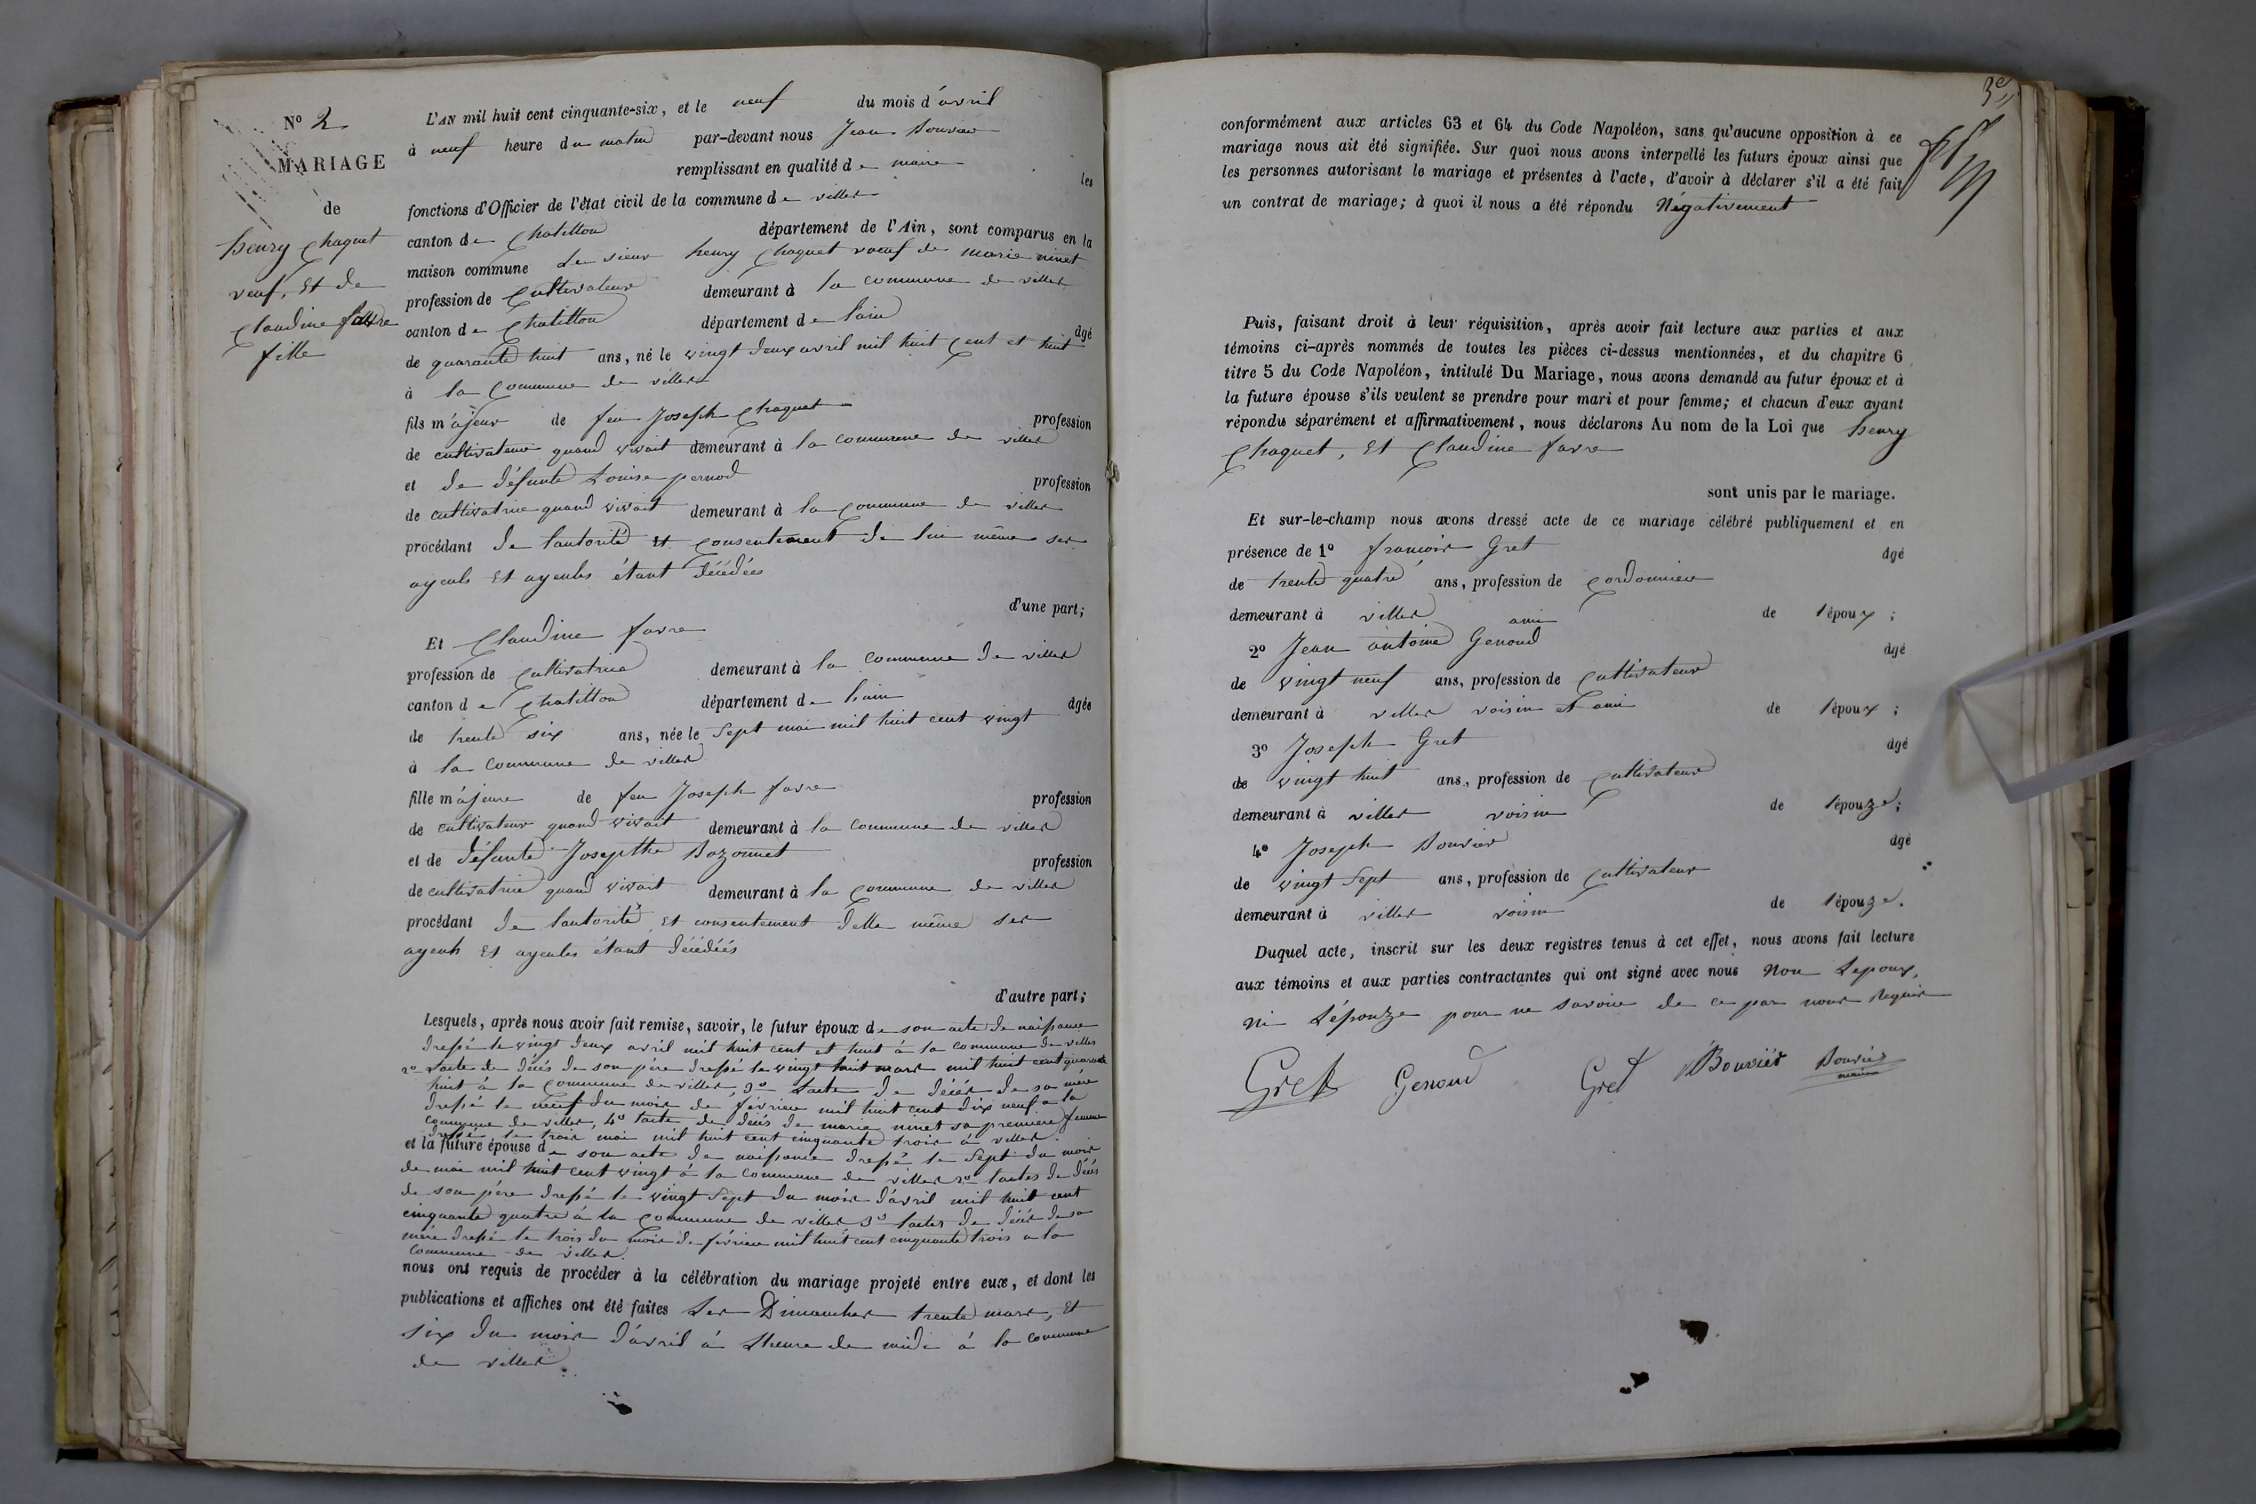 N° 2
MARIAGE
de
henry Chaquet
veuf, Et de
Claudine favre
fille
L'AN mil huit cent cinquante-six, et le neuf du mois d'avril
à neuf heure du matin par-devant nous Jean Bouvier
remplissant en qualité de maire les
fonctions d'Officier de l'état civil de la commune de villes
canton de Chatillon département de l'Ain, sont comparus en la
maison commune Le sieur henry Chaquet voeuf de marie ninet
profession de Cultivateur demeurant à la commune de villes
canton de Chatillon département de lain âgé
de quarante huit ans, né le vingt deux avril mil huit cent et huit
à la Commune de villes
fils majeur de feu Joseph Chaquet profession
de cultivateur quand vivait demeurant à la commune de villes
et de défunte Louise pernod profession
de cultivatrice quand vivait demeurant à la Commune de villes
procédant de lautorité Et Consentement de lui même ses
ayeuls Et ayeules étant décédées
d'une part;
Et Claudine favre
profession de Cultivatrice demeurant à la Commune de villes
canton de Chatillon département de lain âgée
de trente six ans, née le Sept mai mil huit cent vingt
à la Commune de villes
fille majeure de feu Joseph favre profession
de cultivateur quand vivait demeurant à la Commune de villes
et de défunte Josepthe Bozonnet profession
de cultivatrice quand vivait demeurant à la Commune de villes
procédant de lautorité Et consentement delle même ses
ayeuls Et ayeules étant décédés
d'autre part;
Lesquels, après nous avoir fait remise, savoir, le futur époux de son acte de naissance
dressé le vingt deux avril mil huit cent et huit à la Commune de villes
2° Lacte de décés de son père dressé le vingt huit mars mil huit cent quarante
huit à la Commune de villes, 3° Lacte de décés de sa mère
dressé le neuf du mois de février mil huit cent dix neuf a la
Commune de villes, 4° lacte de décés de marie ninet sa première femme
dressé le trois mai mil huit cent cinquante trois à villes
et la future épouse de son acte de naissance dressé le Sept du mois
de mai mil huit cent vingt à la Commune de villes 2° lactes de décés
de son père dressé le vingt Sept du mois d'avril mil huit cent
cinquante quatre à la Commune de villes 3° lactes de décés de sa
mère dressé le trois du mois de février mil huit cent cinquante trois a la
Commune de villes.
nous ont requis de procéder à la célébration du mariage projeté entre eux, et dont les
publications et affiches ont été faites Les Dimanches trente mars, Et
Six du mois d'avril à Lheure de midi à la Commune
de villes
3e
conformément aux articles 63 et 64 du Code Napoléon, sans qu'aucune opposition à ce
mariage nous ait été signifiée. Sur quoi nous avons interpellé les futurs époux ainsi que
les personnes autorisant le mariage et présentes à l'acte, d'avoir à déclarer s'il a été fait
un contrat de mariage; à quoi il nous a été répondu Négativement
Puis, faisant droit à leur réquisition, après avoir fait lecture aux parties et aux
témoins ci-après nommés de toutes les pièces ci-dessus mentionnées, et du chapitre 6
titre 5 du Code Napoléon, intitulé Du Mariage, nous avons demandé au futur époux et à
la future épouse s'ils veulent se prendre pour mari et pour femme; et chacun d'eux ayant
répondu séparément et affirmativement, nous déclarons Au nom de la Loi que henry
Chaquet, Et Claudine favre
sont unis par le mariage.
Et sur-le-champ nous avons dressé acte de ce mariage célébré publiquement et en
présence de 1° francois Gret âgé
de trente quatre ans, profession de Cordonnier
demeurant à villes ami de lépoux;
2° Jean antoine Genoud âgé
de vingt neuf ans, profession de Cultivateur
demeurant à villes voisin et ami de lépoux;
3° Joseph Gret âgé
de vingt huit ans, profession de Cultivateur
demeurant à villes voisin de lépouze;
4° Joseph Bouvier âgé
de vingt Sept ans, profession de Cultivateur
demeurant à villes voisin de lépouze.
Duquel acte, inscrit sur les deux registres tenus à cet effet, nous avons fait lecture
aux témoins et aux parties contractantes qui ont signé avec nous Non Lepoux,
Ni Lépouze pour ne savoir de ce par nous Requis
Gret Genoud Gret Bouvier Bouvier
maire